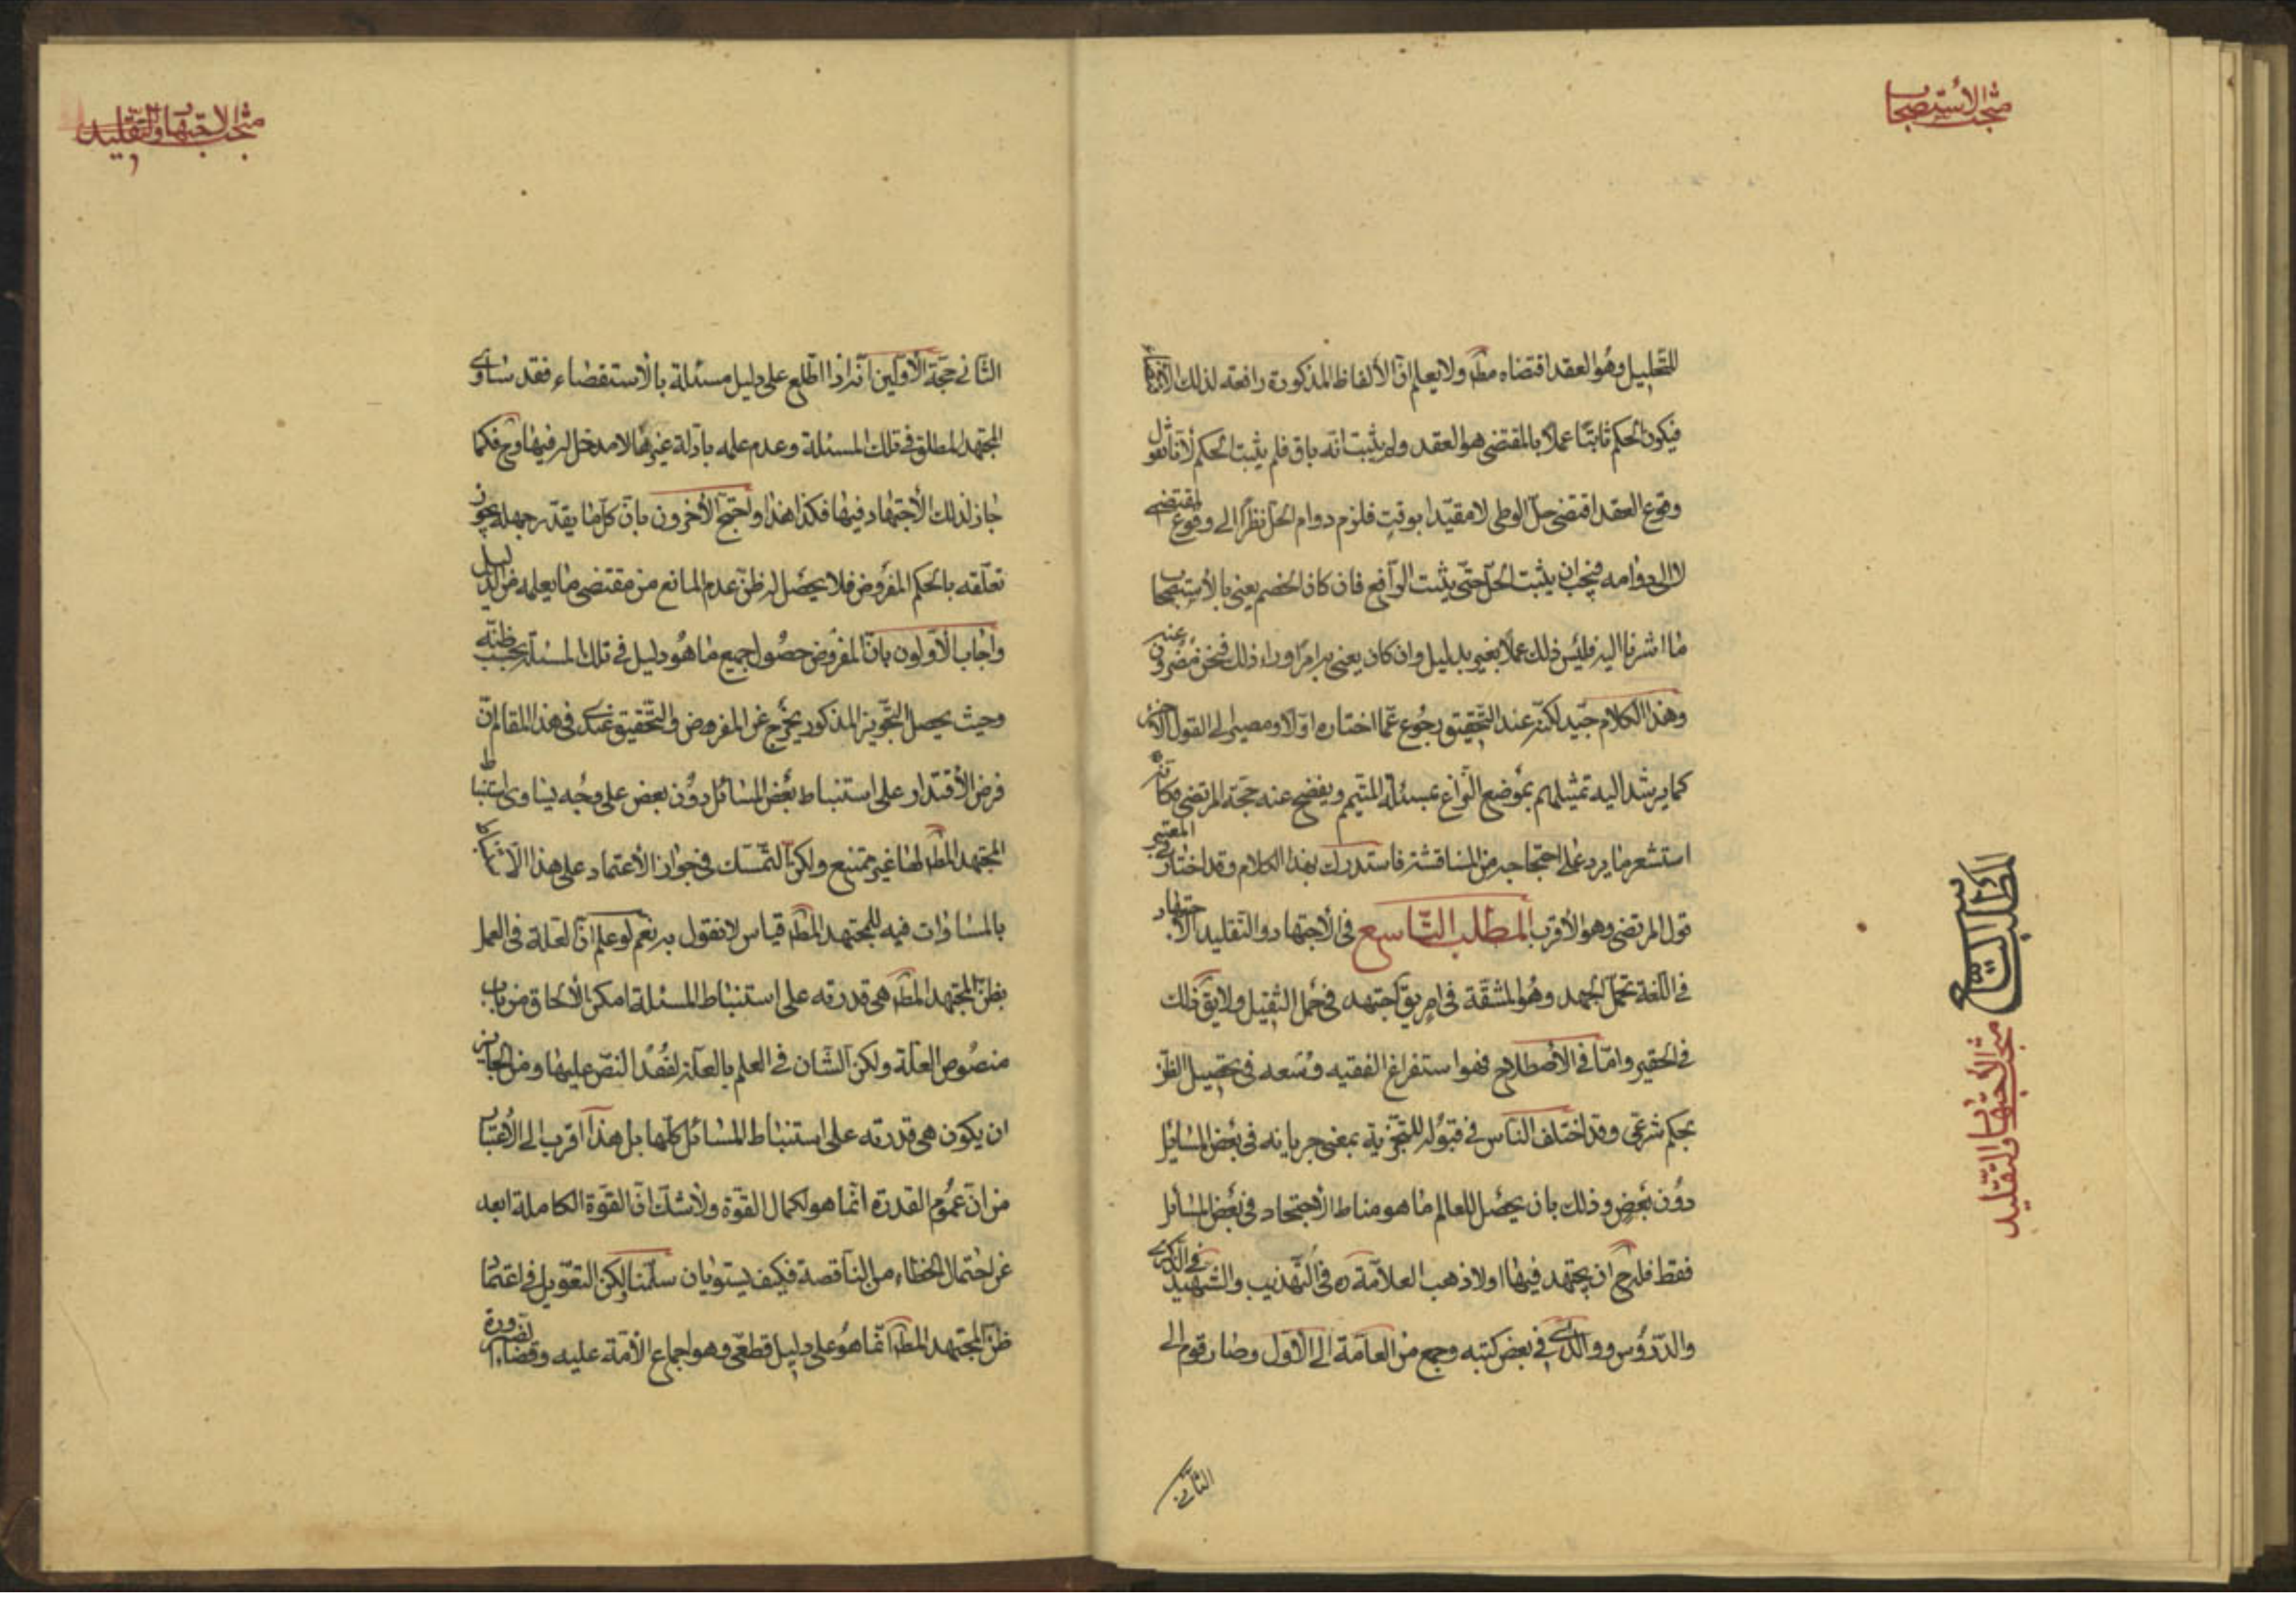 مبحث الاستصحاب
للتحليل وهو العقد اقتضاه مط ولا يعلم ان الألفاظ المذكورة رافعة لذلك الاقتضاء
فيكون الحكم ثابتا عملا بالمقتضى هو العقد ولم يثبت انه باق فلم يثبت الحكم لأنا نقول
وقوع العقد اقتضى حل الوطى لا مقيدا بوقت فلزم دوام الحل نظرا الى وقوع المقتضى
لا الى دوامه فيجب ان يثبت الحل حتى يثبت الرافع فان كان الخصم يعنى بالاستصحاب
ما اشرنا اليه فليس ذلك عملا بغير دليل وان كان يعنى به امرا وراء ذلك فنحن مضربون عنه
وهذا الكلام جيد لكنه عند التحقيق رجوع عما اختاره اولا ومصير الى القول الآخر
كما يرشد اليه تمثيلهم بموضع النزاع بمسئلة المتيمم ويفصح عنه حجة المرتضى فكأنه
استشعر ما يرد على احتجاجه من المناقشة فاستدرك بهذا الكلام وقد اختار في المعتبر
قول المرتضى وهو الأقرب المطلب التاسع في الأجتهاد والتقليد الأجتهاد
في اللغة تحمل الجهد وهو المشقة في امر يق اجتهد في حمل الثقيل ولا يق ذلك
في الحقير واما في الأصطلاح فهو استفراغ الفقيه وسعه في تحصيل الظن
بحكم شرعى وقد اختلف الناس في قبوله للتجزية بمعنى جريانه في بعض المسائل
دون بعض وذلك بان يحصل للعالم ما هو مناط الأجتهاد في بعض المسائل
فقط فله ح ان يجتهد فيها او لا ذهب العلامة ره في التهذيب والشهيد في الذكرى
والدروس ووالدى في بعض كتبه وجمع من العامة الى الأول وصار قوم الى
الثاني
المطلب التاسع
مبحث الأجتهاد والتقليد
مبحث الاجتهاد والتقليد
الثانى حجة الأولين انه اذا اطلع على دليل مسئلة بالأستقصاء فقد ساوى
المجتهد المطلق في تلك المسئلة وعدم علمه بادلة غيرها لا مدخل له فيها وح فكما
جاز لذلك الأجتهاد فيها فكذا هذا واحتج الأخرون بان كل ما يقدر جهله يجوز
تعلقه بالحكم المفروض فلا يحصل له ظن عدم المانع من مقتضى ما يعلمه من الدليل
واجاب الأولون بان المفروض حصول جميع ما هو دليل في تلك المسئلة بحسب ظنه
وحيث يحصل التجويز المذكور يخرج عن المفروض والتحقيق عندى في هذا المقام ان
فرض الأقتدار على استنباط بعض المسائل دون بعض على وجه يساوى استنباط
المجتهد المط لها غير ممتنع ولكن التمسك في جواز الأعتماد على هذا
بالمساوات فيه للمجتهد المط قياس لا نقول به نعم لو علم ان العلة في العمل
بظن المجتهد المط هى قدرته على استنباط المسئلة امكن الألحاق من باب
منصوص العلة ولكن الشان في العلم بالعلة لفقد النص عليها ومن الجايز
ان يكون هى قدرته على استنباط المسائل كلها بل هذا اقرب الى الأعتبار
من ان عموم القدرة انما هو لكمال القوة ولا شك ان القوة الكاملة ابعد
عن احتمال الخطاء من الناقصة فكيف يستويان سلمنا ولكن التعويل في اعتماد
ظن المجتهد المط انما هو على دليل قطعى وهو اجماع الأمة عليه وقضاء الضرورة